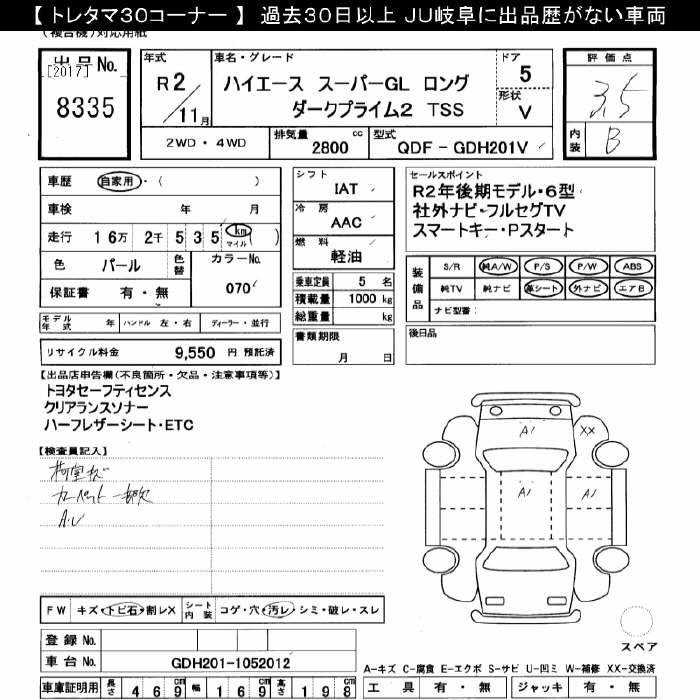 【 トレタマ30コーナー 】 過去30日以上 JU岐阜に出品歴がない車両
(複合機)対応用紙
出品No.
[2017]
8335
年式
R2/11月
車名・グレード
ハイエース スーパーGL ロング
ダークプライム2 TSS
ドア
5
形状
V
2WD・4WD
排気量 2800 cc
型式 QDF - GDH201V
評価点
3.5
内装 B
車歴 自家用・( )
車検 年 月
走行 16万 2千 5 3 5 km マイル ( )
色 パール 色替 カラーNo. 070
保証書 有・無
モデル年式 年 ハンドル 左・右 ディーラー・並行
リサイクル料金 9,550 円 預託済
シフト IAT
冷房 AAC
燃料 軽油
乗車定員 5 名
積載量 1000 kg
総重量 kg
書類期限
月 日
セールスポイント
R2年後期モデル・6型
社外ナビ・フルセグTV
スマートキー・Pスタート
装備品
S/R 純A/W P/S P/W ABS
純TV 純ナビ 革シート 外ナビ エアB
ナビ型番:
後日品
【出品店申告欄(不良箇所・欠品・注意事項等)】
トヨタセーフティセンス
クリアランスソナー
ハーフレザーシート・ETC
【検査員記入】
荷室キズ
カーペット一部欠
A.U
A1 XX
A1 A1
FW キズ・トビ石・割レX シート内装 コゲ・穴・汚レ・シミ・破レ・スレ
登録 No.
車台 No. GDH201-1052012
車庫証明用 長さ 469cm 幅 169cm 高さ 198cm
スペア
A―キズ C―腐食 E―エクボ S―サビ U―凹ミ W―補修 XX―交換済
工具 有・無 ジャッキ 有・無